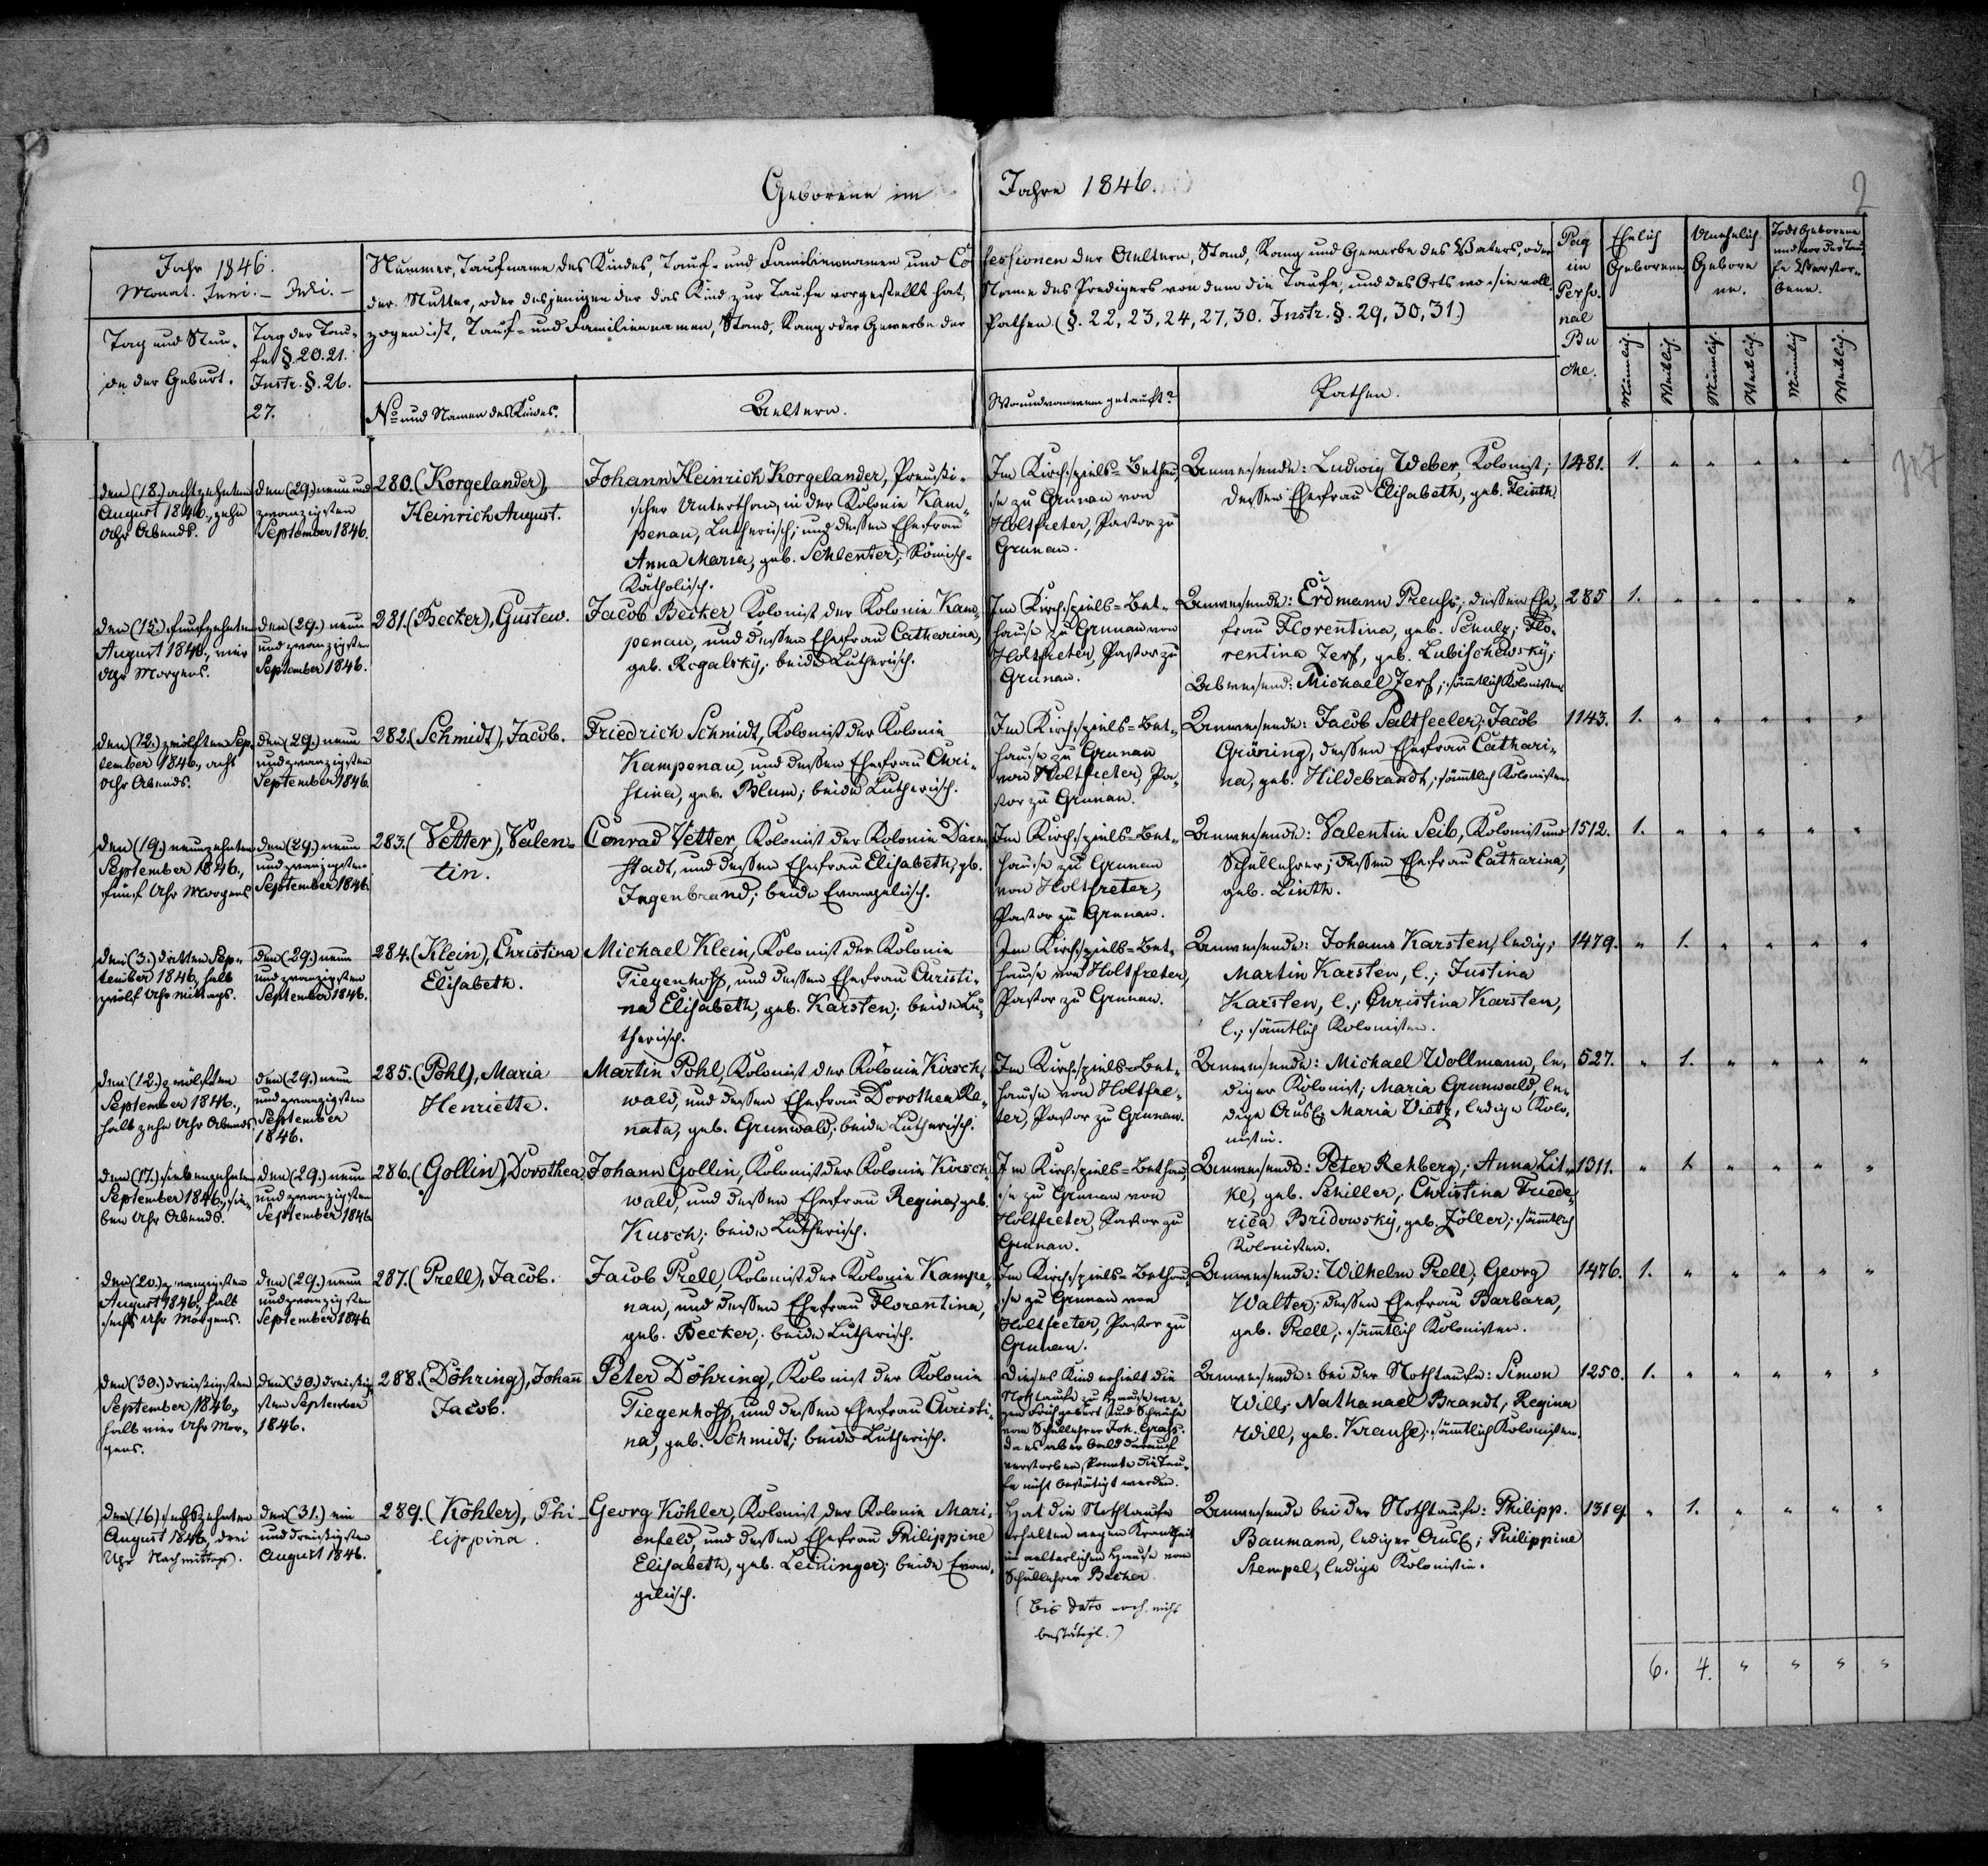 Geborene im Jahre 1846.
2
Jahr 1846.
Monat. Juni. – Juli. –
Tag und Stun-
de der Geburt.
Tag der Tau-
fe §. 20. 21.
Instr. §. 26.
27.
Nummer, Taufname des Kindes, Tauf- und Familiennamen und Co
der Mutter, oder desjenigen der das Kind zur Taufe vorgestellt hat,
zogen ist, Tauf- und Familiennamen, Stand, Rang oder Gewerbe der
No und Namen des Kindes.
Aeltern.
fessionen der Aeltern, Stand, Rang und Gewerbe des Vaters, oder
Name des Predigers von dem die Taufe, und des Orts wo sie voll-
Pathen (§. 22, 23, 24, 27, 30. Instr. §. 29, 30, 31.)
Wo und von wem getauft?
Pathen.
Pag
im
Perso-
nal
Bu
che.
Ehelich
Geborene
Unehelich
Gebore
ne.
Todt Geborene
und vor der Tau-
fe Verstor-
bene.
Männlich
Weiblich
Männlich
Weiblich
Männlich
Weiblich
den (18.) achtzehnten
August 1846., zehn
Uhr Abends.
den (29.) neun und
zwanzigsten
September 1846.
280. (Korgelander),
Heinrich August.
Johann Heinrich Korgelander, Preußi-
scher Unterthan, in der Kolonie Kam-
penau, Lutherisch; und dessen Ehefrau
Anna Maria, geb. Schlenter, Römisch-
Katholisch.
Im Kirchspiels-Bethau-
se zu Grunau von
Holtfreter, Pastor zu
Grunau.
Anwesende: Ludwig Weber, Kolonist;
dessen Ehefrau Elisabeth, geb. Feinth.
1481. 1. " " " " "
den (15.) fünfzehnten
August 1846., vier
Uhr Morgens.
den (29.) neun
und zwanzigsten
September 1846.
281. (Becker), Gustav.
Jacob Becker, Kolonist der Kolonie Kam-
penau, und dessen Ehefrau Catharina,
geb. Rogalsky; beide Lutherisch.
Im Kirchspiels-Bet-
hause zu Grunau von
Holtfreter, Pastor zu
Grunau.
Anwesende: Erdmann Preuhs; dessen Ehe-
frau Florentina, geb. Schulz; Flo-
rentina Zerf, geb. Lubischewsky;
Abwesend: Michael Zerf; sämtlich Kolonisten
285 1. " " " " "
den (12.) zwölften Sep-
tember 1846., acht
Uhr Abends.
den (29.) neun
und zwanzigsten
September 1846.
282. (Schmidt), Jacob.
Friedrich Schmidt, Kolonist der Kolonie
Kampenau, und dessen Ehefrau Chri-
stina, geb. Blum; beide Lutherisch.
Im Kirchspiels-Bet-
hause zu Grunau
von Holtfreter, Pa-
stor zu Grunau.
Anwesende: Jacob Saltseeler; Jacob
Gröning, dessen Ehefrau Cathari-
na, geb. Hildebrandt; sämtlich Kolonisten.
1143. 1. " " " " "
den (19.) neunzehnten
September 1846.,
fünf Uhr Morgens
den (29.) neun
und zwanzigsten
September 1846.
283. (Vetter), Valen-
tin.
Conrad Vetter, Kolonist der Kolonie Darm
stadt, und dessen Ehefrau Elisabeth, gb.
Ingenbrand; beide Evangelisch.
Im Kirchspiels-Bet-
hause zu Grunau
von Holtfreter,
Pastor zu Grunau.
Anwesende: Valentin Seib, Kolonist und
Schullehrer; dessen Ehefrau Catharina,
geb. Linth.
1512. 1. " " " " "
den (3.) dritten Sep-
tember 1846., halb
zwölf Uhr Mittags.
den (29.) neun
und zwanzigsten
September 1846.
284. (Klein), Christina
Elisabeth.
Michael Klein, Kolonist der Kolonie
Tiegenhoff, und dessen Ehefrau Christi-
na Elisabeth, geb. Karsten; beide Lu-
therisch.
Im Kirchspiels-Bet-
hause von Holtfreter,
Pastor zu Grunau.
Anwesende: Johann Karsten, ledig;
Martin Karsten, l.; Justina
Karsten, l.; Christina Karsten,
l.; sämtlich Kolonisten.
1479. " 1. " " " "
den (12.) zwölften
September 1846.,
halb zehn Uhr Abends
den (29.) neun
und zwanzigsten
September
1846.
285. (Pohl), Maria
Henriette.
Martin Pohl, Kolonist der Kolonie Kirsch-
wald, und dessen Ehefrau Dorothea Re-
nata, geb. Grunwald; beide Lutherisch.
Im Kirchspiels-Bet-
hause von Holtfre-
ter, Pastor zu Grunau.
Anwesende: Michael Wollmann, le-
diger Kolonist; Maria Grunwald, le-
dige Maria Vietz, ledige Kolo-
nistin.
527. " 1. " " " "
den (17.) siebenzehnten
September 1846., sie-
ben Uhr Abends.
den (29.) neun
und zwanzigsten
September 1846
286. (Gollin), Dorothea
Johann Gollin, Kolonist der Kolonie Kirsch-
wald, und dessen Ehefrau Regina, geb.
Kusch; beide Lutherisch.
Im Kirchspiels-Bethau-
se zu Grunau von
Holtfreter, Pastor zu
Grunau.
Anwesende: Peter Rehberg; Anna Lit-
ke, geb. Schiller; Christina Friede-
rica Bridowsky, geb. Zöller; sämtlich
Kolonisten.
1311. " 1. " " " "
den (20.) zwanzigsten
August 1846., halb
sechs Uhr Morgens.
den (29.) neun
und zwanzigsten
September 1846
287. (Prell), Jacob.
Jacob Prell, Kolonist der Kolonie Kampe-
nau, und dessen Ehefrau Florentina,
geb. Becker; beide Lutherisch.
Im Kirchspiels-Bethau-
se zu Grunau von
Holtfreter, Pastor zu
Grunau.
Anwesende: Wilhelm Prell; Georg
Walter; dessen Ehefrau Barbara,
geb. Prell; sämtlich Kolonisten.
1476. 1. " " " " "
den (30.) dreißigsten
September 1846.,
halb vier Uhr Mor-
gens.
den (30.) dreißig-
sten September
1846.
288. (Döhring), Johann
Jacob.
Peter Döhring, Kolonist der Kolonie
Tiegenhoff, und dessen Ehefrau Christi-
na, geb. Schmidt; beide Lutherisch.
Dieses Kind erhielt die
Nothtaufe zu Hause we-
gen Frühgeburt und Schwäche
vom Schullehrer Joh. Grass.
da es aber bald darauf
verstorben, konnte die Tau-
fe nicht bestätigt werden.
Anwesende: bei der Nothtaufe: Simon
Will; Nathanael Brandt, Regina
Will, geb. Krause; sämtlich Kolonisten.
1250. 1. " " " " "
den (16) sechszehnten
August 1846, drei
Uhr Nachmittags.
den (31.) ein
und dreißigsten
August 1846.
289. (Köhler), Phi-
lippina.
Georg Köhler, Kolonist der Kolonie Mari-
enfeld, und dessen Ehefrau Philippine
Elisabeth, geb. Leichinger; beide Evan-
gelisch.
Hat die Nothtaufe
erhalten wegen Krankheit
im aelterlichen Hause vom
Schullehrer Becher
(bis dato noch nicht
bestätigt.)
Anwesende bei der Nothtaufe: Philipp.
Baumann, lediger; Philippine
Stempel, ledige Kolonistin.
1319. " 1. " " " "
6. 4. " " " "